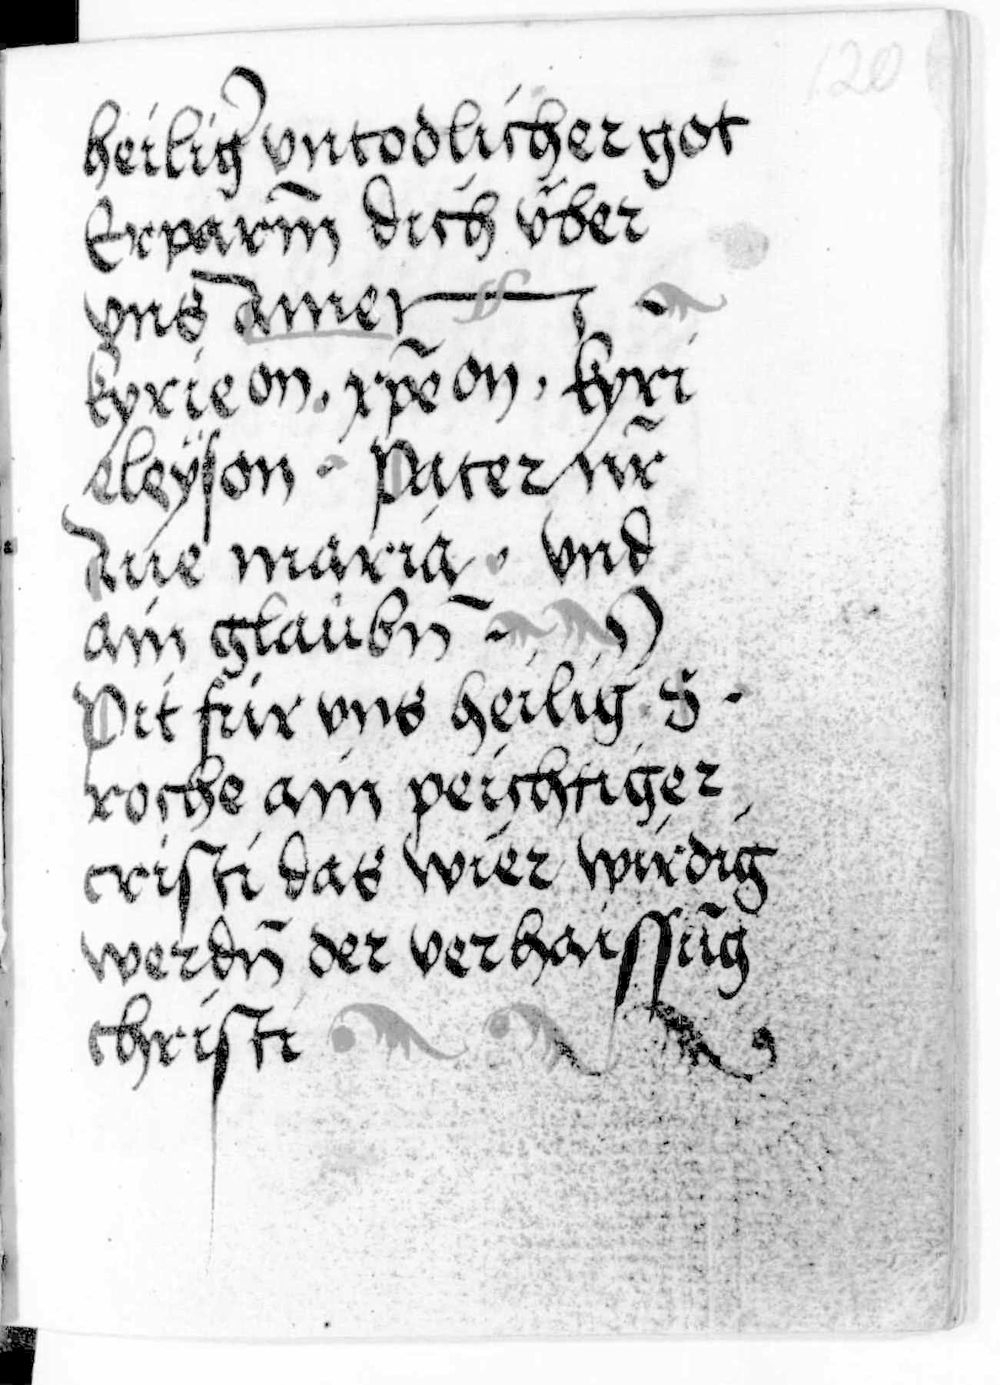 120
heilig̾ vntodlicher got
Erparm̄ dich v̈ber
vns amen
kyrie on . xp̄e on , kyri
eleÿson - Pater nr̄
Aue maria , vnd
ain glaubn̄ -
Pit für vns heilig S -
roche ain peichtiger
cristi das wier wirdig
werdn̄ der verhaissūg
christi